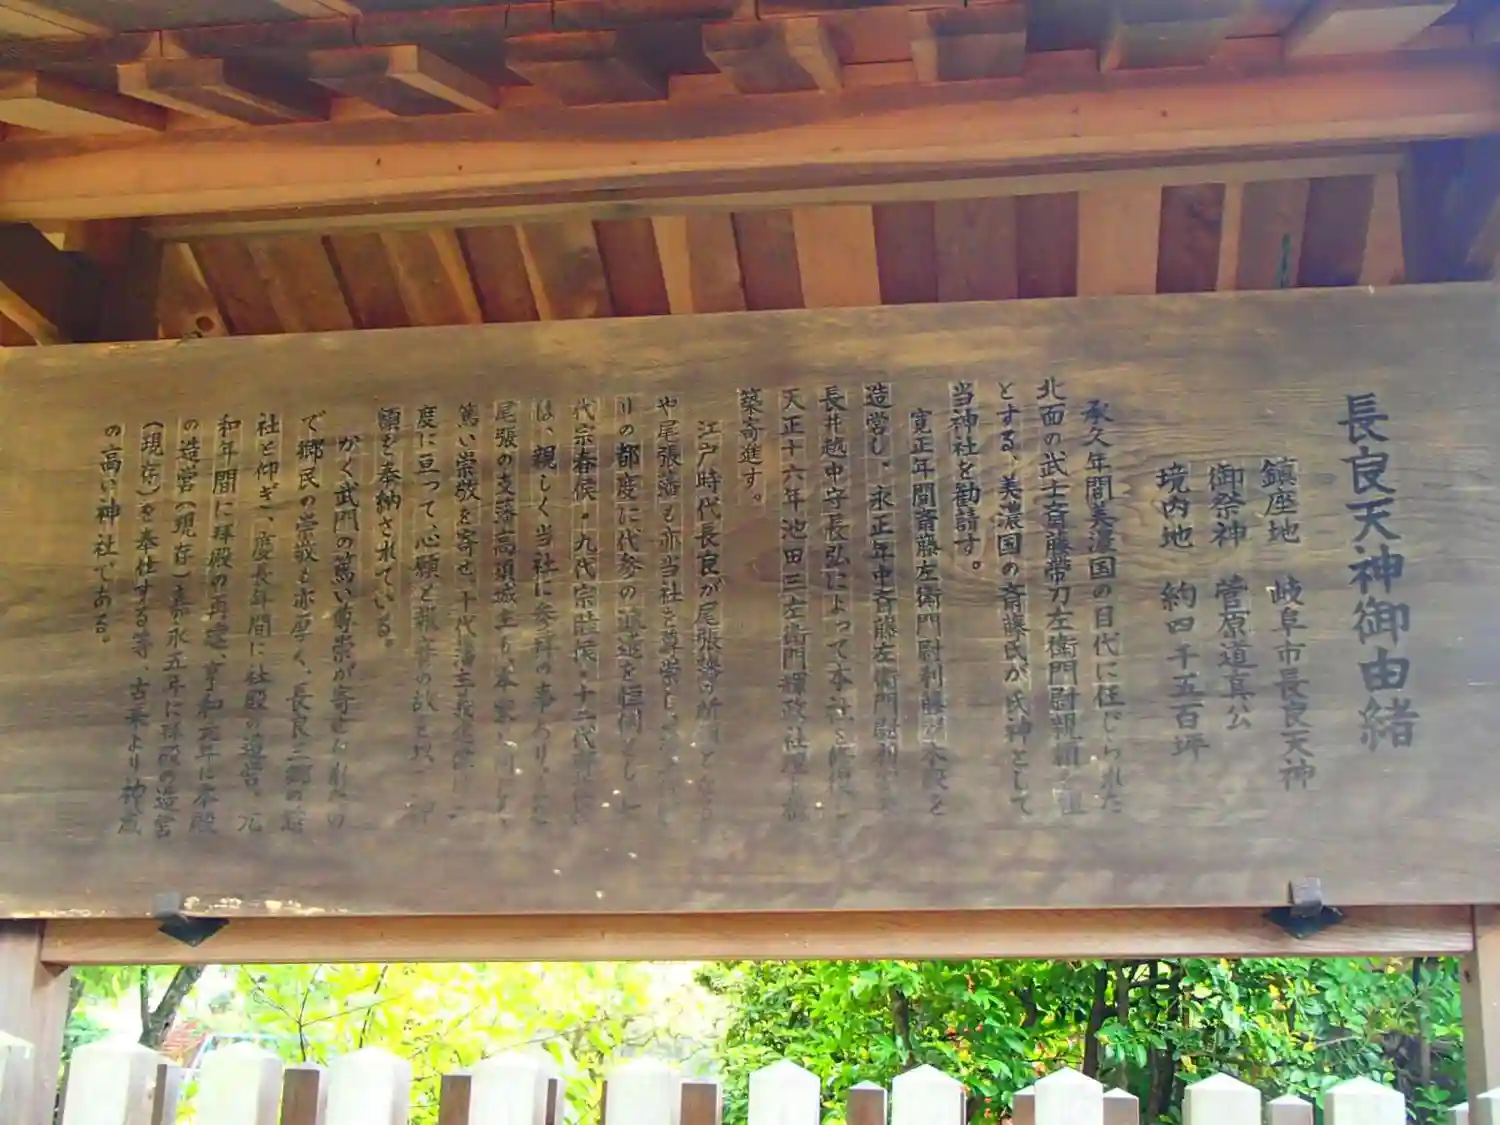 長良天神御由緒
鎮座地 岐阜市長良天神
御祭神 菅原道真公
境内地 約四千五百坪
承久年間美濃国の目代に任じられた
北面の武士斉藤帯刀左衛門尉親頼を祖
とする、美濃国の斉藤氏が氏神として
当神社を勧請す。
寛正年間斎藤左衛門尉利藤が本殿を
造営し、永正年中斉藤左衛門尉利
長井越中守長弘によって本社を修復、
天正十六年池田三左衛門輝政社壇を
築寄進す。
江戸時代長良が尾張藩の所領となる
や尾張藩も亦当社を尊崇し
りの都度に代参の派遣を恒例とし
代宗春候・九代宗睦候・十二代
は、親しく当社に参拝の事あり。
尾張の支藩高須城主も本家と同じく
篤い崇敬を寄せ、十代藩主義建候は
度に亘って、心願と報賽の故を以
額を奉納されている。
かく武門の篤い尊崇が寄せられたの
で郷民の崇敬も亦厚く、長良三郷の総
社と仰ぎ、慶長年間に社殿の造営、元
和年間に拝殿の再建、享和年に本殿
の造営(現存)嘉永五年に拝殿の造営
(現存)を奉仕する等、古来より神威
の高い神社である。